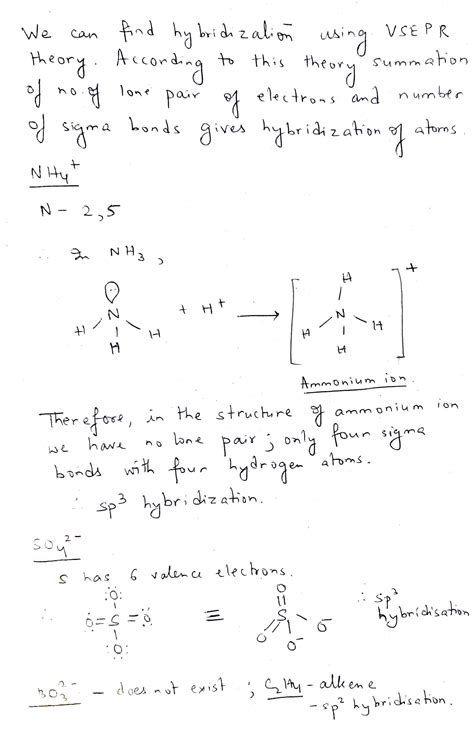 We can find hybridization using VSEPR
theory. According to this theory summation
of no. of lone pair of electrons and number
of sigma bonds gives hybridization of atoms.
NH4+
N - 2,5
∴ In NH3,
H
+
N + H+ → N
H H H H
H H
Ammonium ion
Therefore, in the structure of ammonium ion
we have no lone pair; only four sigma
bonds with four hydrogen atoms.
∴ sp3 hybridization.
SO4 2-
S has 6 valence electrons.
∴ :O: O ∴ sp3
O=S=O ≡ S hybridisation
:O: O O- O-
2- - does not exist ; C2H4 - alkene
- sp2 hybridisation.